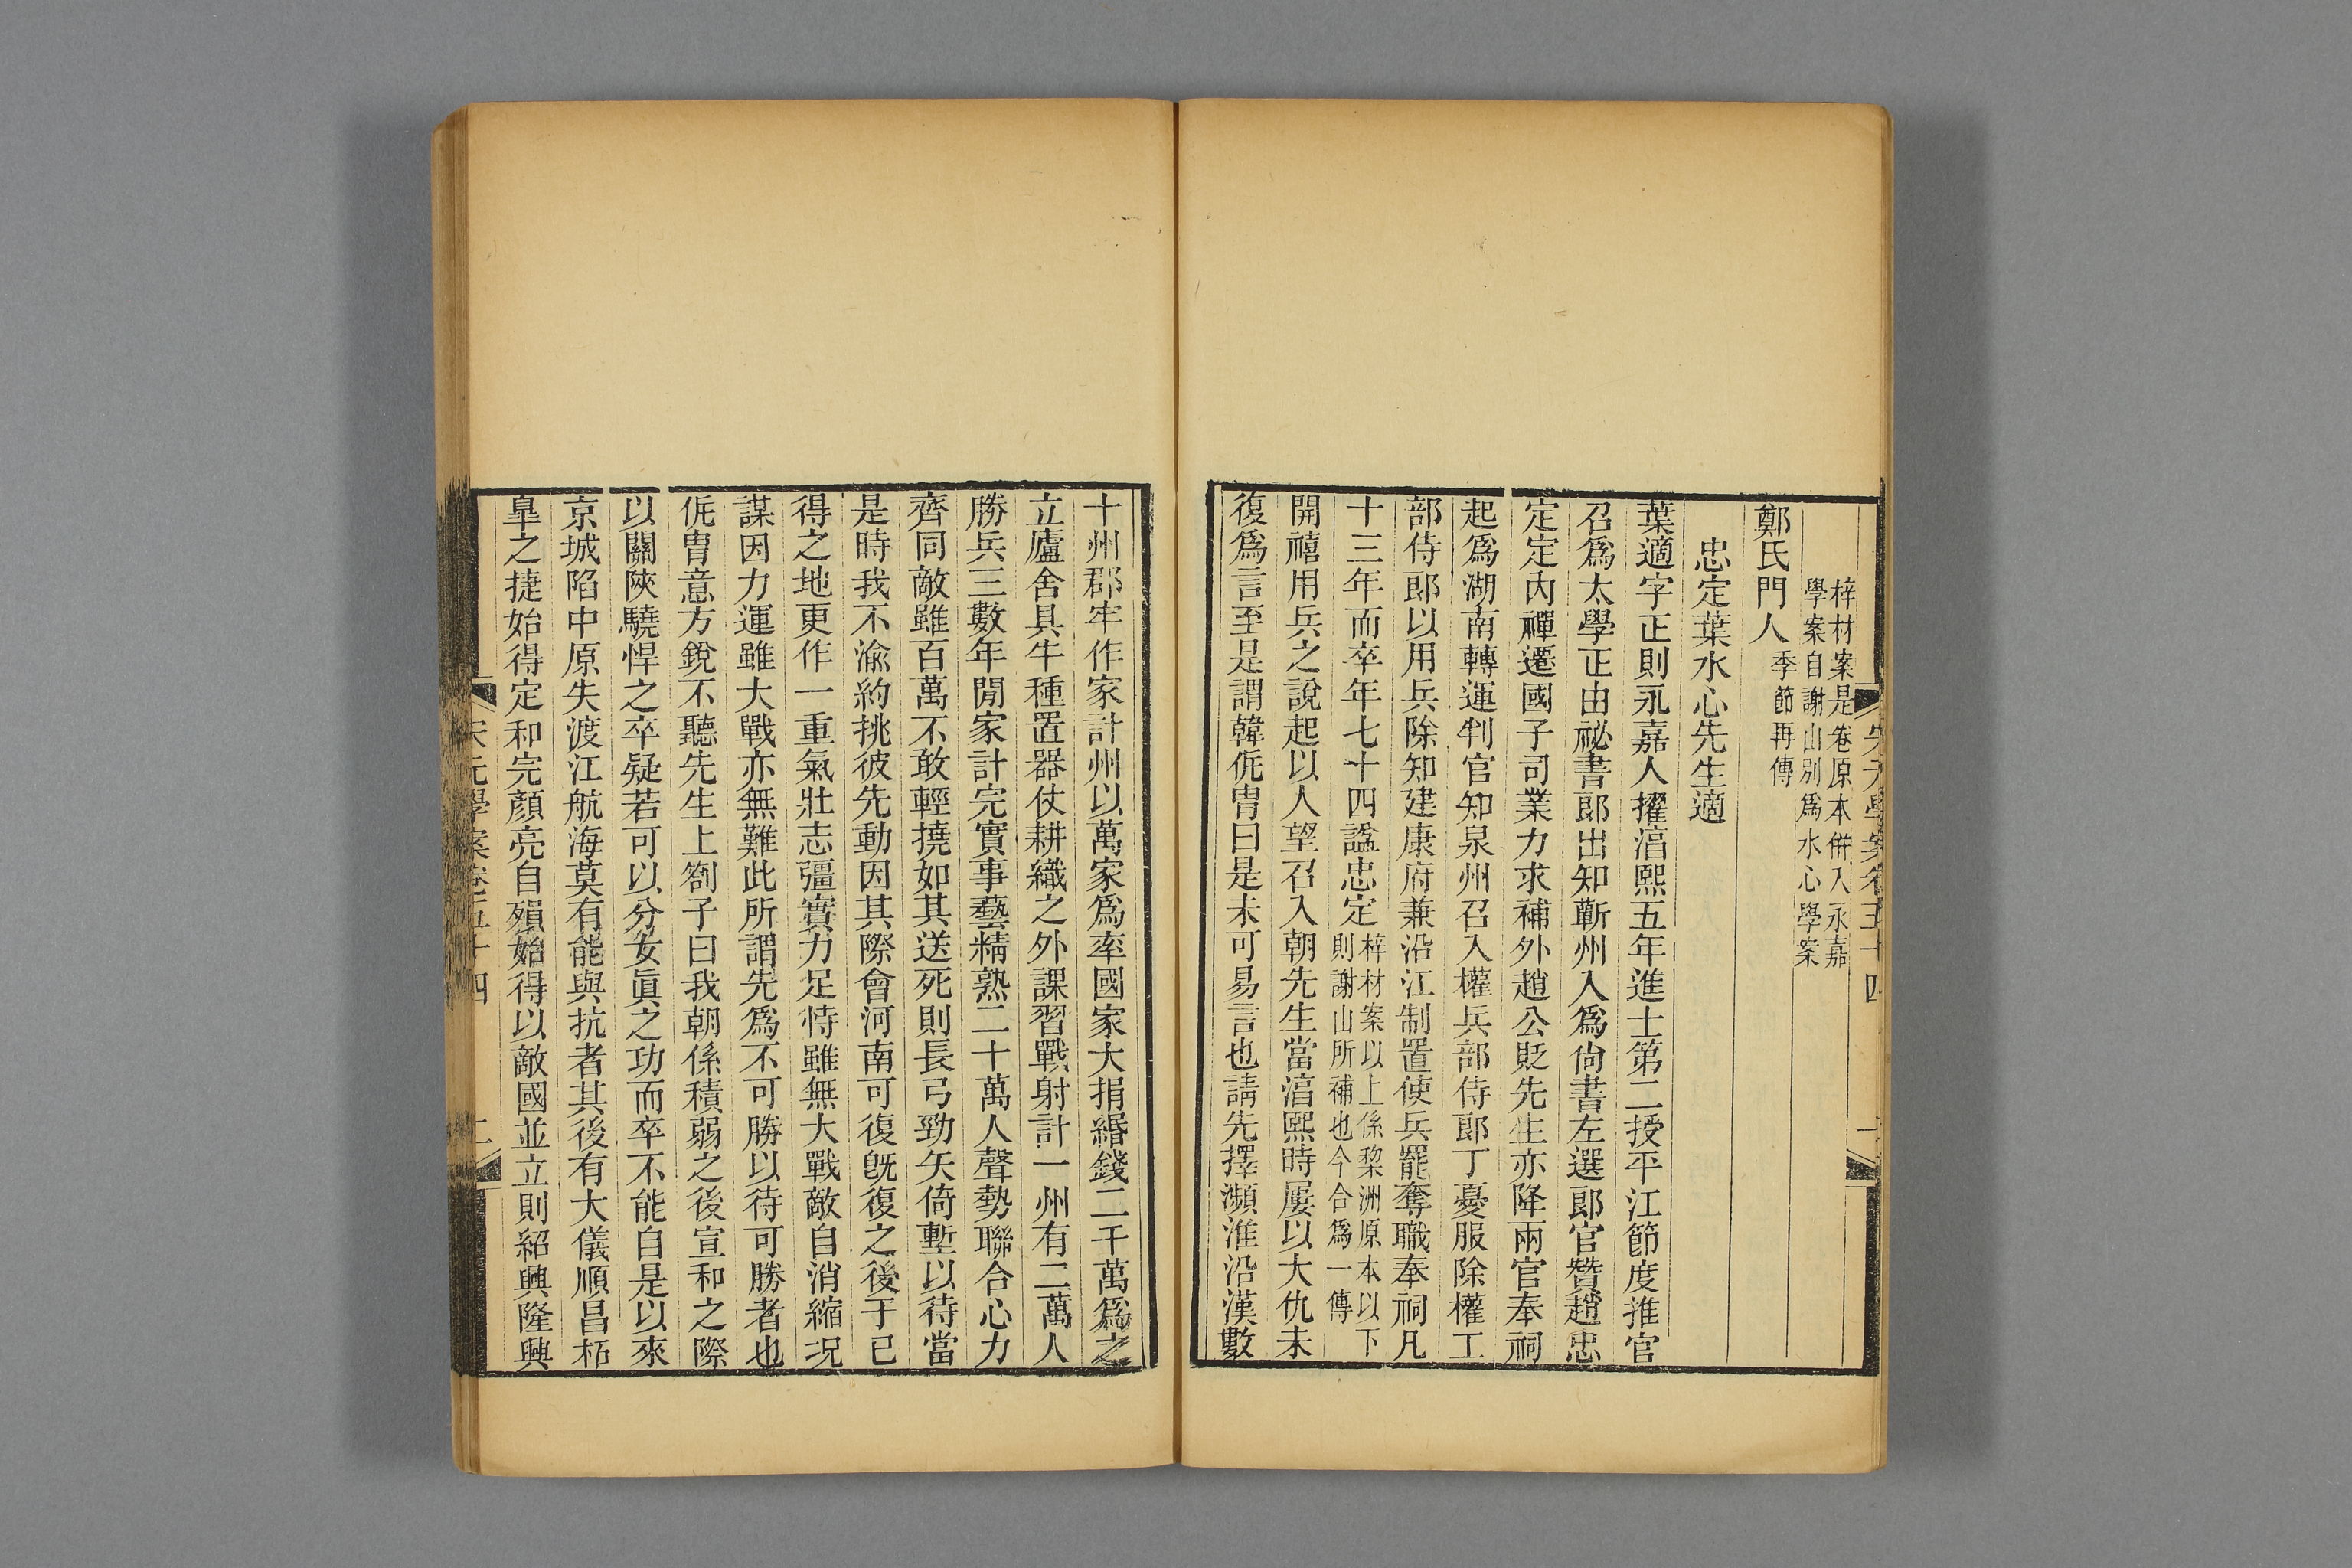 宋元學案卷五十四　一
梓材案是卷原本併入永嘉
學案自謝山別爲水心學案
鄭氏門人季節再傳
忠定葉水心先生適
葉適字正則永嘉人擢淳熙五年進士第二授平江節度推官
召爲太學正由祕書郎出知蘄州入爲尚書左選郎官贊趙忠
定定內禪遷國子司業力求補外趙公貶先生亦降兩官奉祠
起爲湖南轉運判官知泉州召入權兵部侍郎丁憂服除權工
部侍郎以用兵除知建康府兼沿江制置使兵罷奪職奉祠凡
十三年而卒年七十四諡忠定梓材案以上係棃洲原本以下
則謝山所補也今合爲一傳
開禧用兵之說起以人望召入朝先生當淳熙時屢以大仇未
復爲言至是謂韓侂胄曰是未可易言也請先擇瀕淮沿漢數
十州郡牢作家計州以萬家爲率國家大捐緡錢二千萬爲之
立廬舍具牛種置器仗耕織之外課習戰射計一州有二萬人
勝兵三數年閒家計完實事藝精熟二十萬人聲勢聯合心力
齊同敵雖百萬不敢輕撓如其送死則長弓勁矢倚塹以待當
是時我不渝約挑彼先動因其際會河南可復旣復之後于已
得之地更作一重氣壯志彊實力足恃雖無大戰敵自消縮況
謀因力運雖大戰亦無難此所謂先爲不可勝以待可勝者也
侂胄意方銳不聽先生上劄子曰我朝係積弱之後宣和之際
以關陝驍悍之卒疑若可以分女眞之功而卒不能自是以來
京城陷中原失渡江航海莫有能與抗者其後有大儀順昌柘
皐之捷始得定和完顏亮自殞始得以敵國並立則紹興隆興
宋元學案卷五十四　二